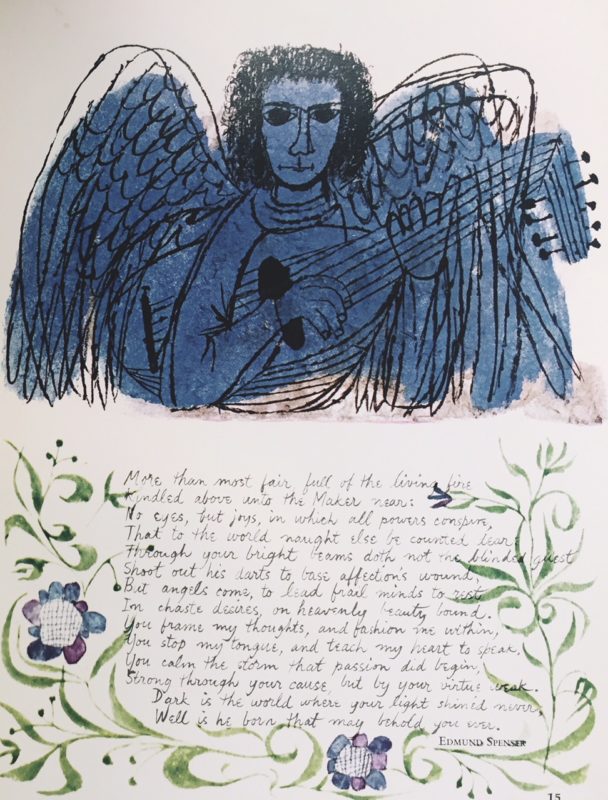 More than most fair full of the living fire
Kindled above unto the Maker near:
No eyes, but joys, in which all powers conspire,
That to the world naught else be counted dear:
Through your bright beams doth not the blinded guest
Shoot out his darts to base affection's wound;
But angels come, to lead frail minds to rest
In chaste desires, on heavenly beauty bound.
You frame my thoughts, and fashion me within,
You stop my tongue, and teach my heart to speak,
You calm the storm that passion did begin,
Strong through your cause, but by your virtue weak.
Dark is the world where your light shined never,
Well is he born that may behold you ever.
EDMUND SPENSER
15